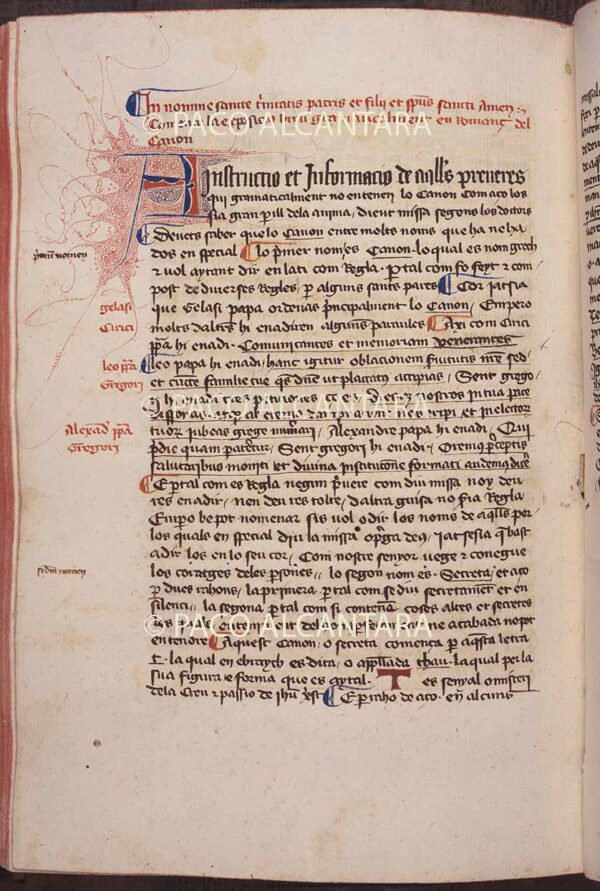 In nomine sancte trinitatis patris et filij et spus sancti Amen
Comença la esposicio breu gramaticalment en Romanç del
Canon
A Instructio et Informacio de aqlls preveres
qui gramaticalment no entenen lo Canon com aço los
sia gran pill dela anima, dient missa segons los doctors
Devets saber que lo Canon entre molts noms que ha ne ha
dos en special Lo pmer nom es Canon lo qual es nom grech
primu nomen
e vol aytant dir en lati com Regla. Ptal com fo feyt e com
post de diverses Regles, p alguns sants pares Cor jatsia
gelasi
que Gelasi papa ordenas pncipalment lo Canon, Empero
Cirici
molts daltres hi enadiren algunes paraules Axi com Cirici
ppa hi enadi. Comunicantes et memoriam venerantes
leo ppa
Leo papa hi enadi, hanc igitur oblacionem servitutis nre sed
Gregori
et cuncte familie tue qs dne ut placatus accipias, Sent grego
ri hi enada tres peticions ço es, Diesqz nostros in tua pace
disponas, atqz ab eterna dampnacione nos eripi et in electorum
Alexad ppa
tuorum jubeas grege numerari, Alexandre papa hi enadi, Qui
Gregori
pdie quam pateretur, Sent gregori hi enadi, Oremus pceptis
salutaribus moniti et divina institucione formati audemus dice
E ptal com es Regla negun pvere com diu missa noy deu
res enadir, nen deu res tolre, daltra guisa no sia Regla
Empo be pot nomenar sis vol o dir los noms de aqlls per
los quals en special diu la missa o pga deu, jatsesia que bast
a dir los en lo seu cor, Com nostre senyor vege e conegue
los coratges deles psones, lo segon nom es. Secreta, et aço
sedm nomen
p dues rahons, la primera p tal com se diu secretament et en
silenci, la segona p tal com si contenen coses altes et secretes
les quals enteniment del hom psona carne acabada no pot
entendre Aquest Canon, o secreta comença p aqsta letra
T. la qual en ebraych es dita, o appellada thau. la qual per la
sua figura e forma que es aytal. T es senyal o misteri
dela Creu e passio de ihu xst E p raho de aço. en alcuns
© PACO ALCANTARA
© PACO ALCANTARA
© PACO ALCANTARA